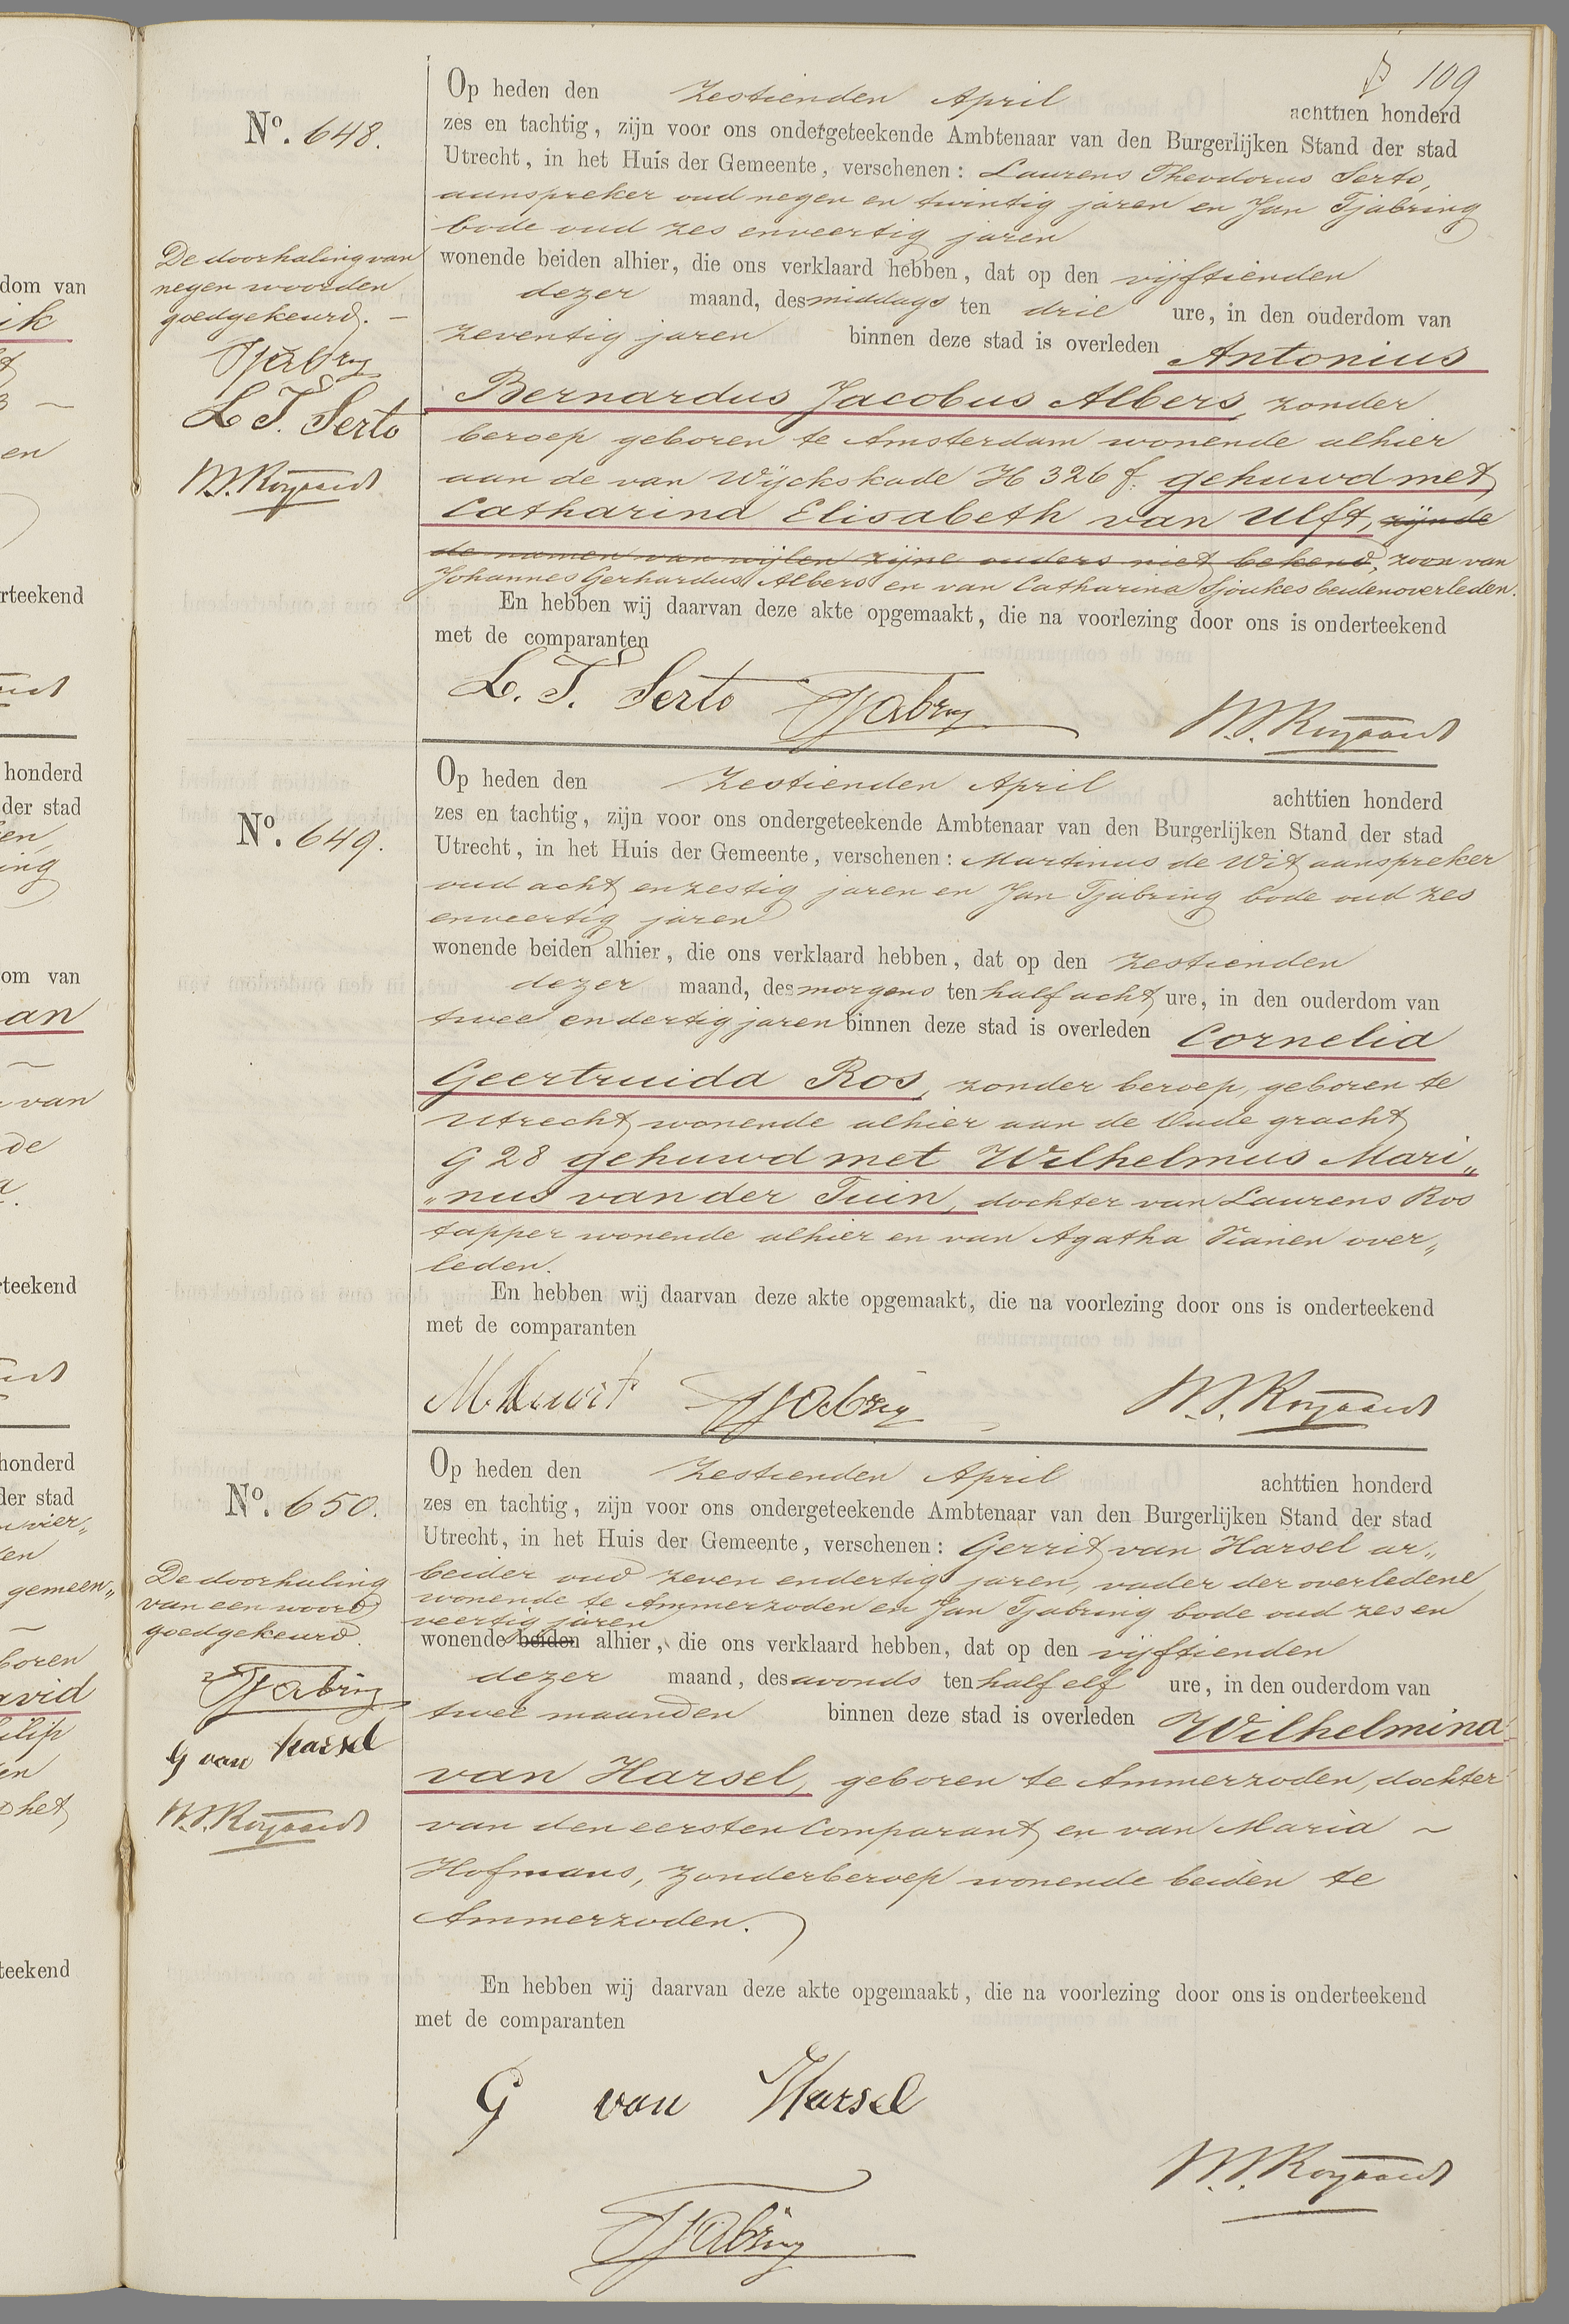 109
Nº. 648.
Op heden den Zestienden April achttien honderd
zes en tachtig, zijn voor ons ondergeteekende Ambtenaar van den Burgerlijken Stand der stad
Utrecht, in het Huis der Gemeente, verschenen: Laurens Theodorus Serto,
aanspreker oud negen en twintig jaren en Jan Tjabring
bode oud zes enveertig jaren
wonende beiden alhier, die ons verklaard hebben, dat op den vijftienden
dezer maand, des middags ten drie ure, in den ouderdom van
zeventig jaren binnen deze stad is overleden Antonius
Bernardus Jacobus Albers, zonder
beroep geboren te Amsterdam wonende alhier
aan de van Wijckskade H 326 f. gehuwd met
Catharina Elisabeth van Ulft, zijnde
de namen van wijlen zijne ouders niet bekend, zoon van
Johannes Gerhardus Albers en van Catharina Sjoukes beiden overleden.
En hebben wij daarvan deze akte opgemaakt, die na voorlezing door ons is onderteekend
met de comparanten
L. T. Serto Tjabring W.J. Royaards
De doorhaling van
negen woorden
goedgekeurd. —
Tjabring
L T. Serto
W.J. Royaards
Nº. 649.
Op heden den Zestienden April achttien honderd
zes en tachtig, zijn voor ons ondergeteekende Ambtenaar van den Burgerlijken Stand der stad
Utrecht, in het Huis der Gemeente, verschenen: Martinus de Wit aanspreker
oud acht enzestig jaren en Jan Tjabring bode oud zes
enveertig jaren
wonende beiden alhier, die ons verklaard hebben, dat op den zestienden
dezer maand, des morgens ten half acht ure, in den ouderdom van
twee endertig jaren binnen deze stad is overleden Cornelia
Geertruida Ros, zonder beroep, geboren te
Utrecht wonende alhier aan de Oude gracht
G 28 gehuwd met Wilhelmus Mari„
„nus van der Tuin, dochter van Laurens Ros
tapper wonende alhier en van Agatha Vianen over„
leden.
En hebben wij daarvan deze akte opgemaakt, die na voorlezing door ons is onderteekend
met de comparanten
M. de Wit Tjabring W.J. Royaards
Nº. 650.
Op heden den Zestienden April achttien honderd
zes en tachtig, zijn voor ons ondergeteekende Ambtenaar van den Burgerlijken Stand der stad
Utrecht, in het Huis der Gemeente, verschenen: Gerrit van Harsel ar„
beider oud zeven endertig jaren, vader der overledene
wonende te Ammerzoden en Jan Tjabring bode oud zes en
veertig jaren
wonende beiden alhier, die ons verklaard hebben, dat op den vijftienden
dezer maand, des avonds ten half elf ure, in den ouderdom van
twee maanden binnen deze stad is overleden Wilhelmina
van Harsel, geboren te Ammerzoden, dochter
van den eersten Comparant en van Maria ~
Hofmans, zonder beroep wonende beiden te
Ammerzoden.
En hebben wij daarvan deze akte opgemaakt, die na voorlezing door ons is onderteekend
met de comparanten
G van Harsel
W.J. Royaards
Tjabring
De doorhaling
van een woord
goedgekeurd.
Tjabring
G van Harsel
W.J. Royaards